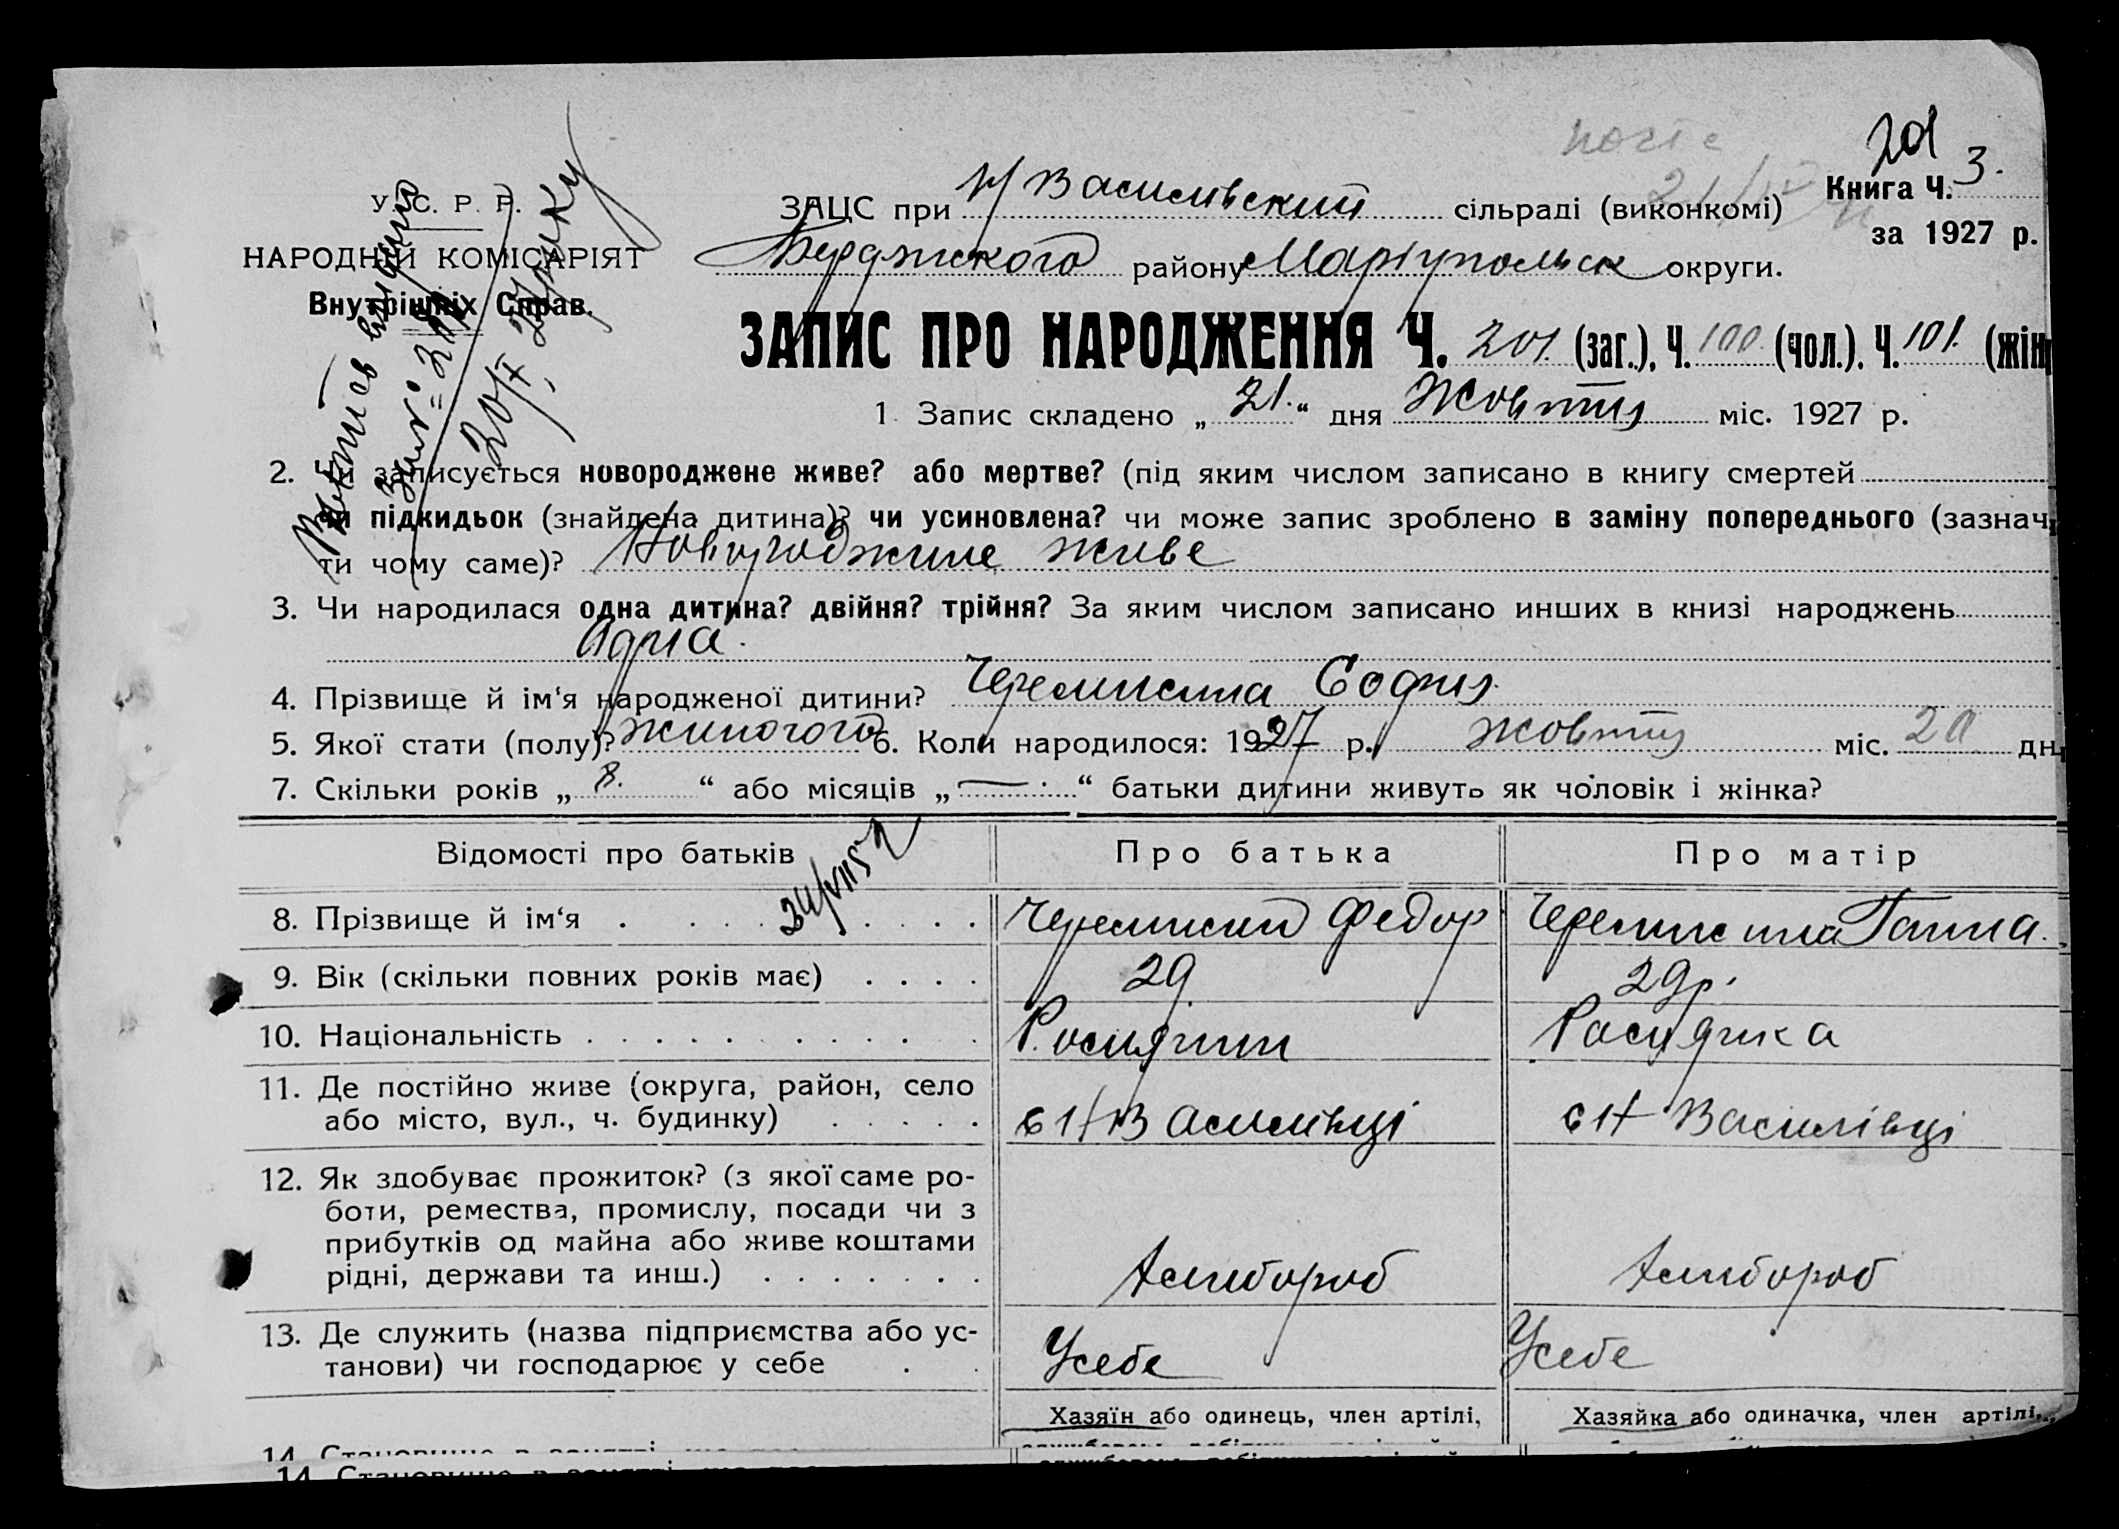 201
У. С. Р. Р.
НАРОДНІЙ КОМІСАРІЯТ
Внутрішніх Справ.
Книга Ч. 3.
за 1927 р.
ЗАЦС при Н/Василівский сільраді (виконкомі)
району Маріупольск округи.
ЗАПИС ПРО НАРОДЖЕННЯ Ч. 201. (заг.), Ч. 100 (чол.). Ч. 101. (жін
1. Запис складено „ 21. “ дня Жовтня міс. 1927 р.
2. записується новороджене живе? або мертве? (під яким числом записано в книгу смертей
чи підкидьок (знайдена дитина)? чи усиновлена? чи може запис зроблено в заміну попереднього (зазнач
ти чому саме)? Новороджене живе
3. Чи народилася одна дитина? двійня? трійня? За яким числом записано инших в книзі народжень
Одна.
4. Прізвище й ім‘я народженої дитини? Черемисина София.
5. Якої стати (полу)? жиночого 6. Коли народилося: 1927 р. жовтня міс. 20 дн
7. Скільки років „ 8. “ або місяців „ — “ батьки дитини живуть як чоловік і жінка?
Відомості про батьків
Про батька
Про матір
8. Прізвище й ім‘я . . . . . . . Черемисин Федор Черемисина Ганна.
9. Вік (скільки повних років має) . . . . 29 29 р.
10. Національність . . . . . . . . . . Росиянин Росиянка
11. Де постійно живе (округа, район, село
або місто, вул., ч. будинку) . . . . . с Н/Василівці с Н Василівці
12. Як здобуває прожиток? (з якої саме ро-
боти, ремества, промислу, посади чи з
прибутків од майна або живе коштами
рідні, держави та инш.) . . . . . . . Хлибороб Хлибороб
13. Де служить (назва підприємства або ус-
танови) чи господарює у себе . . Усебе Усебе
Хазяїн або одинець, член артілі,
Хазяйка або одиначка, член артілі,